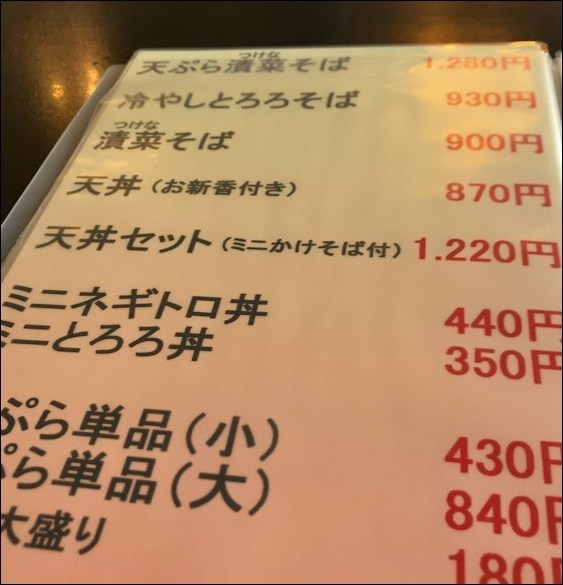 つけな
天ぷら漬菜そば 1.280円
冷やしとろろそば 930円
つけな
漬菜そば 900円
天丼（お新香付き） 870円
天丼セット（ミニかけそば付） 1.220円
ミニネギトロ丼 440円
ミニとろろ丼 350円
ぷら単品（小） 430円
ぷら単品（大） 840円
大盛り 180円